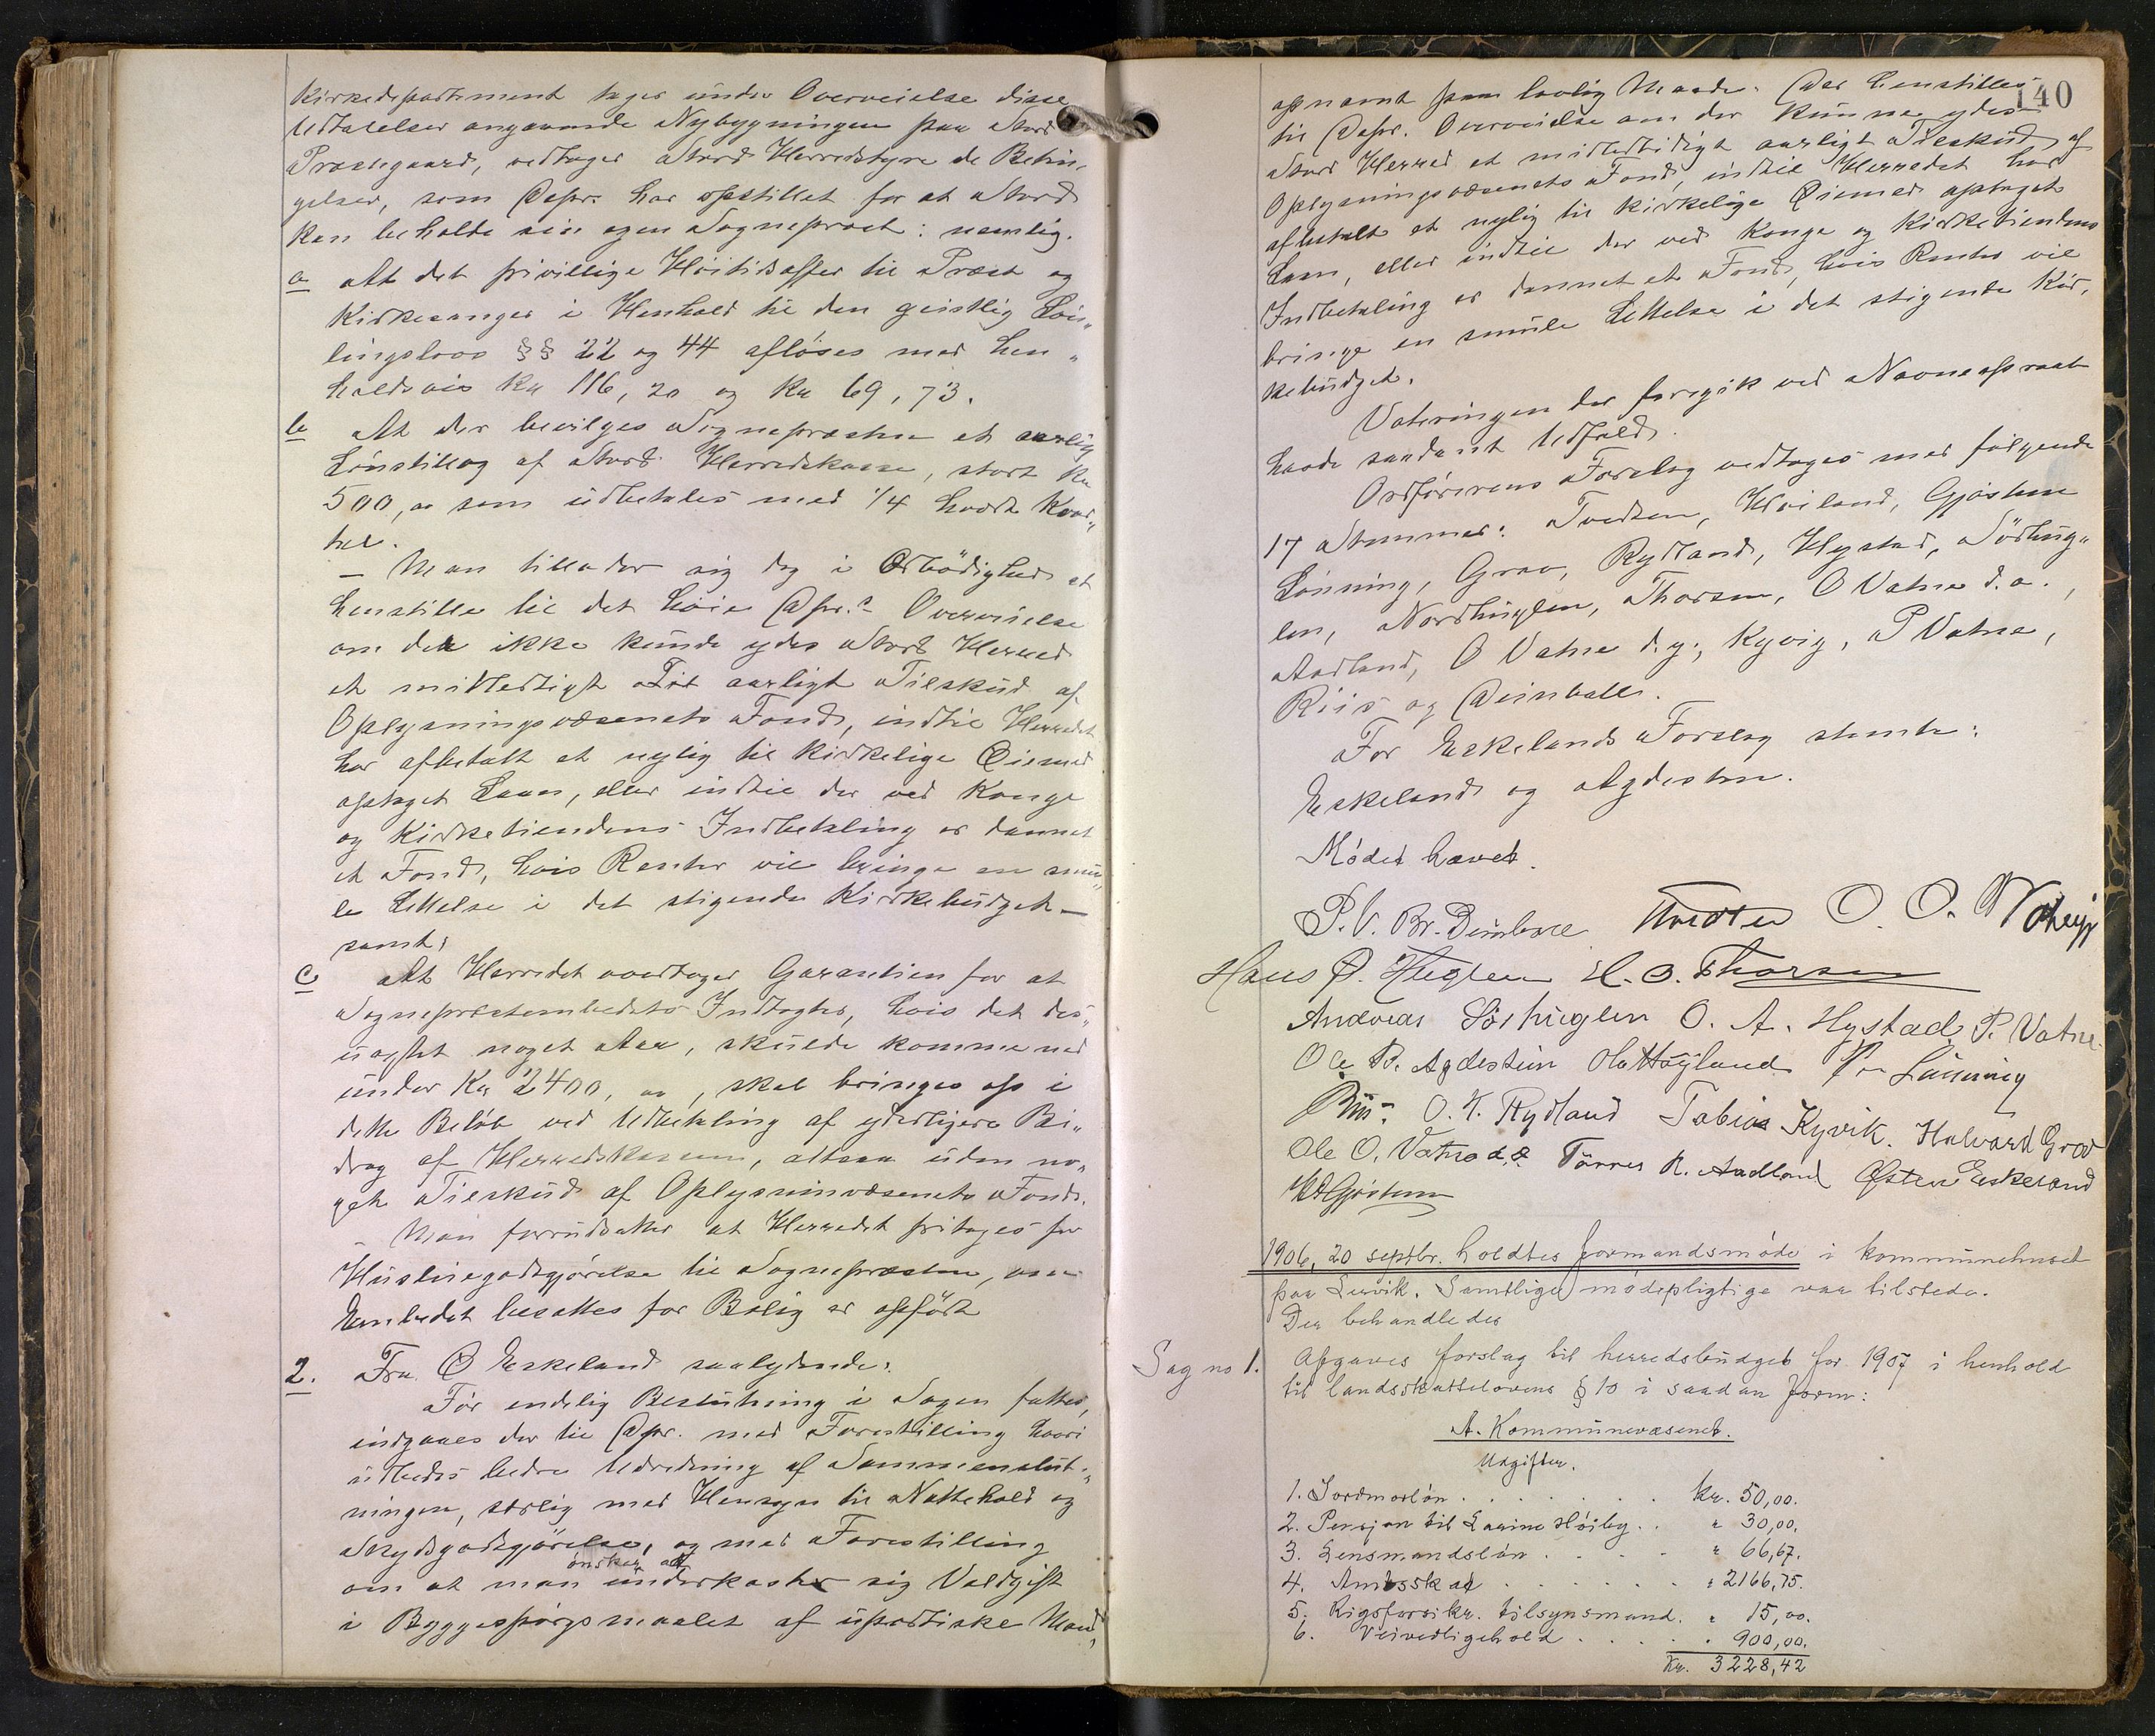 Kirkedepartement tages under Overveielse disse
Udtalelser angaaende Nybygningen paa Stord
Præstegaard, vedtager Stord Herredstyre de Betin„
gelser, som Depr. har opstillet for at Stord
kan beholde sin egen Sogneprest: nemlig.
a At det frivillige Høitidsoffer til Præst og
Kirkesanger i Henhold til den geistlig Løn„
lingslovs §§ 22 og 44 afløses med hen„
holdsvis Kr 116,20 og Kr 69,73.
b At der bevilges Sognepræsten et aarlig
Lønstillæg af Stord Herredskasse, stort Kr
500,00 som udbetales med 1/4 hvert Kvar„
tal.
– Man tillader sig dog i Ærbødighed at
henstille til det høie Dpr.s Overveielse
om det ikke kunde ydes Stord Herred
et midlertidigt aarligt Tilskud af
Oplysningsvæsenets Fond, indtil Herredet
har afbetalt et nylig til kirkelige Øiemed
optaget Laan, eller indtil der ved Konge
og Kirketiendens Indbetaling er dannet
et Fond, hvis Renter vil bringe en smu„
le Lettelse i det stigende Kirkebudget –
samt:
c At Herredet overtager Garantien for at
Sognepræstembedets Indtægter, hvis det des„
uagtet noget Aar, skulde komme ned
under Kr 2400,00, skal bringes op i
dette Beløb ved Udbetaling af yderligere Bi„
drag af Herredskassen, altsaa uden no„
get Tilskud af Oplysninvæsenets Fond.
– Man forudsætter at Herredet fritages for
Husleiegodtgjørelse til Sognepræsten, om
Embedet besættes før Bolig er opført
2. Fra Ø Eskeland saalydende:
Før endelig Beslutning i Sagen fattes,
indgaaes der til Dpr. med Forestilling hvori
udbedes bedre Udredning af Sammenslut„
ningen, særlig med Hensyn til Nattehold og
Skydsgodtgjørelse, og med Forestilling
ønsker at
om at man underkaster sig Voldgift
i Byggespørgsmaalet af upartiske Mænd,
140
opnævnt paa lovlig Maade. Det henstilles
til Depr. Overveielse om der kunne ydes
Stord Herred et midlertidigt aarligt Tilskud af
Oplysningsvæsenets Fond, indtil Herredet har
afbetalt et nylig til kirkelige Øiemed optaget
Laan, eller indtil der ved Konge og Kirketiendens
Indbetaling er dannet et Fond, hvis Renter vil
bringe en smule Lettelse i det stigende Kir„
kebudget.
Voteringen der foregik ved Navneopraab
havde saadant Udfald.
Ordførerens Forslag vedtoges med følgende
17 Stemmer: Tvedten, Høiland, Gjøstein
Lønning, Grov, Rydland, Hystad, Sørhug„
len, Nordhuglen, Thorsen, O Vatne d.æ.,
Aadland, O Vatne d.y., Kyvig, P Vatne,
Riis og Deinboll.
For Eskelands Forslag stemte:
Eskeland og Agdestein.
Mødet hævet.
P. V. Br. Deinboll Tvedten O. O.
Hans Ø. Huglen H. O. Thorsen
Andreas Sørhuglen O. A. Hystad P. Vatne
Ole B. Agdestein Høyland Lønning
Riis O. T. Rydland Tobias Kyvik. Halvard Grov
Ole O. Vatne d.æ. Tørres R. Aadland Østen Eskeland
Gjøstein
1906, 20 septbr. holdtes formandsmøde i kommunehuset
paa Lervik. Samtlige mødepligtige var tilstede.
Der behandledes
Sag no 1. Afgaves forslag til herredsbudget for 1907 i henhold
til landsskattelovens § 10 i saadan form:
A. Kommunevæsenet.
Udgifter.
1. Jordmorløn . . . . . . . kr. 50,00.
2. Pensjon til Larine Høiby . . " 30,00.
3. Lensmandsløn . . . . " 66,67.
4. Amtsskat . . . . . . " 2166,75.
5. Rigsforsikr. tilsynsmand. " 15,00.
6. Veivedligehold . . . . . 900,00.
Kr. 3228,42